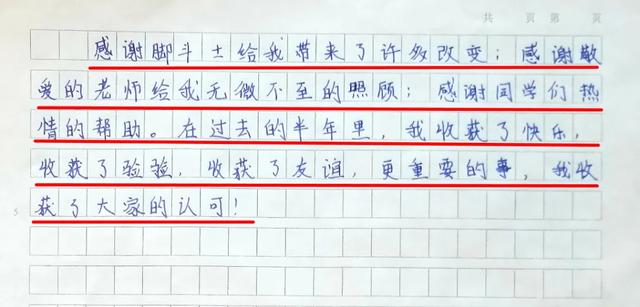 共 页 第 页
感谢脚斗士给我带来了许多改变；感谢敬
爱的老师给我无微不至的照顾；感谢同学们热
情的帮助。在过去的半年里，我收获了快乐，
收获了验验，收获了友谊，更重要的事，我收
获了大家的认可！
5